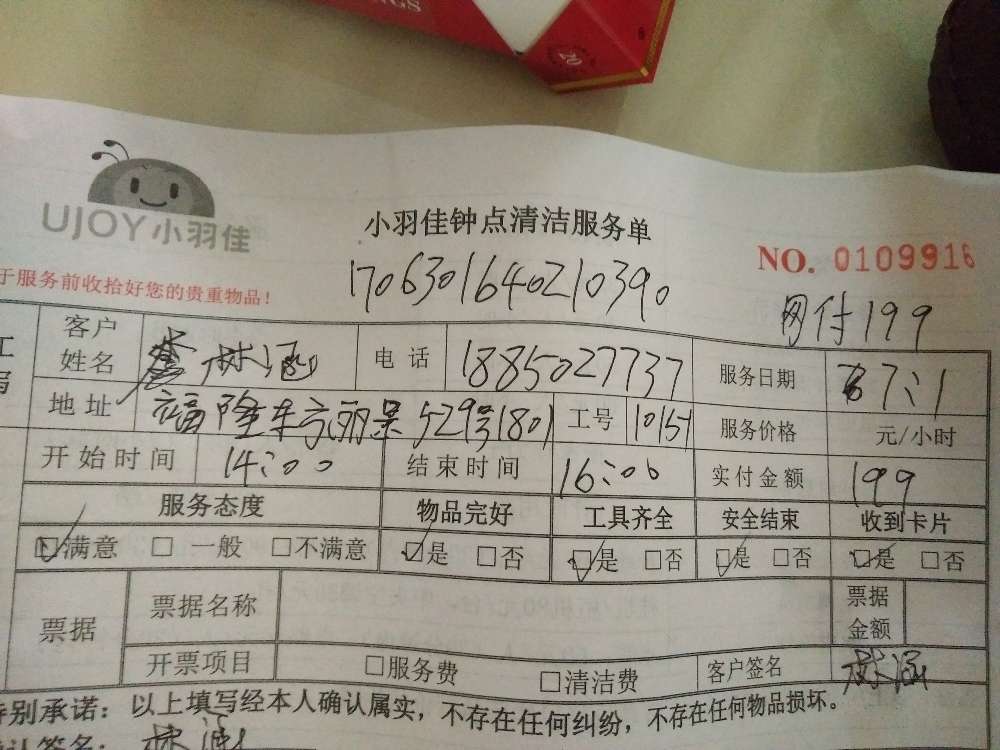 NGS
20
UJOY小羽佳
小羽佳钟点清洁服务单
NO. 0109916
于服务前收拾好您的贵重物品！
1706301640210390
网付199
客户姓名 树涵 电话 18850277737 服务日期 7:1
地址 福隆东方丽景529号1801 工号 10151 服务价格 元/小时
开始时间 14:00 结束时间 16:00 实付金额 199
服务态度 物品完好 工具齐全 安全结束 收到卡片
☑满意 □一般 □不满意 ☑是 □否 ☑是 □否 ☑是 □否 ☑是 □否
票据 票据名称 票据金额
开票项目 □服务费 □清洁费 客户签名 树涵
特别承诺：以上填写经本人确认属实，不存在任何纠纷，不存在任何物品损坏。
认签名： 树涵